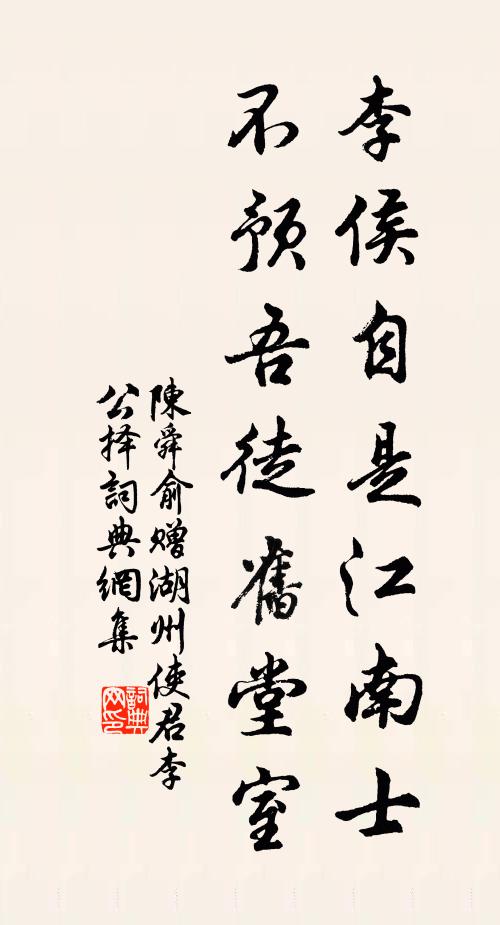 李侯自是江南士
不預吾徒舊堂室
陳舜俞赠湖州使君李
公择詞典網集
詞典网印